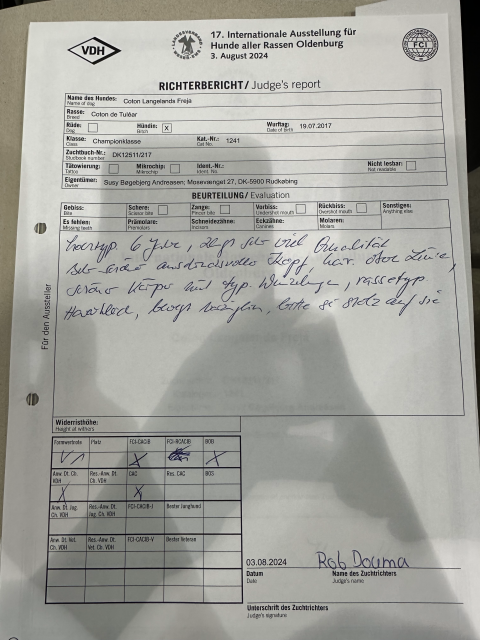 VDH
17. Internationale Ausstellung für
Hunde aller Rassen Oldenburg
3. August 2024
FCI
RICHTERBERICHT / Judge's report
Name des Hundes: Coton Langelands Freja
Name of dog
Rasse: Coton de Tuléar
Breed
Rüde: Hündin: X Wurftag: 19.07.2017
Dog Bitch Date of birth
Klasse: Championklasse Kat.-Nr.: 1241
Class Cat No.
Zuchtbuch-Nr.: DK12511/217
Studbook number
Tätowierung: Mikrochip: Ident.-Nr.: Nicht lesbar:
Tattoo Mikrochip Ident. No. Not readable
Eigentümer: Susy Bøgebjerg Andreasen; Måsevænget 27, DK-5900 Rudkøbing
Owner
BEURTEILUNG / Evaluation
Gebiss: Schere: Zange: Vorbiss: Rückbiss: Sonstiges:
Bite Scissor bite Pincer bite Undershut mouth Overshut mouth Anything else
Es fehlen: Prämolare: Schneidezähne: Eckzähne: Molaren:
Missing teeth Premolars Incisors Canines Molars
6 Jahre, sehr viel Qualität
sehr schöne ausdrucksvolle Kopf, har. obere Linie,
schöne Körper mit typ. Winkelungen, rassetyp.
Haarkleid, bewegt bitte so stolz auf sie
Für den Aussteller
Widerristhöhe:
Height at withers
Formwertnote Platz FCI-CACIB FCI-RCACIB BOB
V 1 X X
Anw. Dt. Ch. VDH Res.-Anw. Dt. Ch. VDH CAC Res. CAC BOS
X X
Anw. Dt. Jug. Ch. VDH Res.-Anw. Dt. Jug. Ch. VDH FCI-CACIB-J Bester Junghund
Anw. Dt. Vet. Ch. VDH Res.-Anw. Dt. Vet. Ch. VDH FCI-CACIB-V Bester Veteran
03.08.2024 Rob Douma
Datum Name des Zuchtrichters
Date Judge's name
Unterschrift des Zuchtrichters
Judge's signature